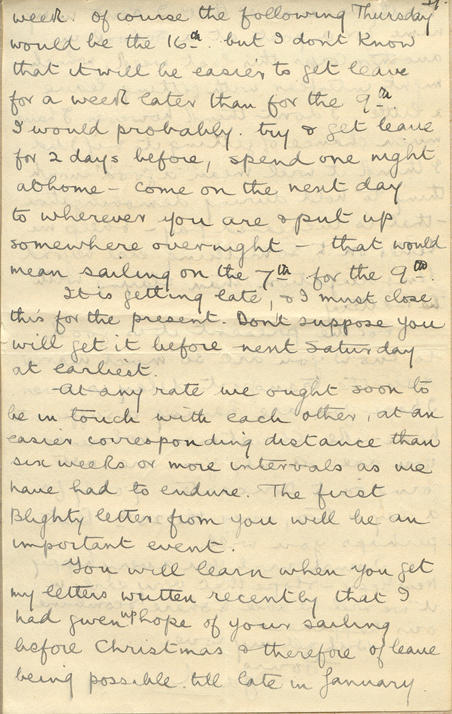 week. Of course the following Thursday
would be the 16th but I don't know
that it will be easier to get leave
for a week later than for the 9th.
I would probably try & get leave
for 2 days before, spend one night
at home – come on the next day
to wherever you are & put up
somewhere overnight – that would
mean sailing on the 7th for the 9th.
It is getting late, & I must close
this for the present. Don't suppose you
will get it before next Saturday
at earliest.
At any rate we ought soon to
be in touch with each other, at an
easier corresponding distance than
six weeks or more intervals as we
have had to endure. The first
Blighty letter from you will be an
important event.
You will learn when you get
my letters written recently that I
had given up hope of your sailing
before Christmas & therefore of leave
being possible till late in January